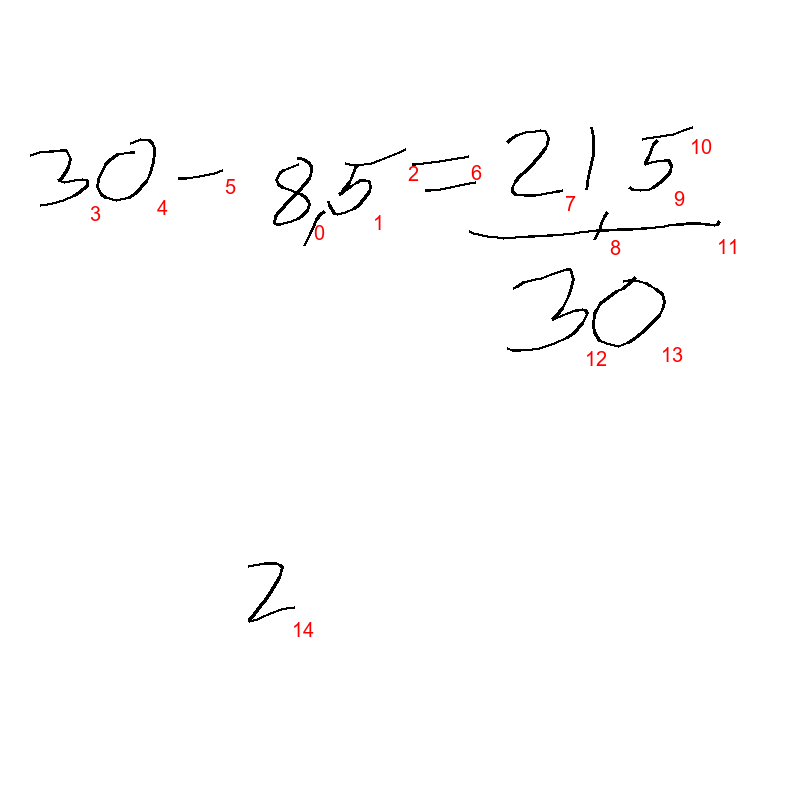 30 - 8,5 = 21,5
30
2
3 4 5 0 1 2 6 7 8 9 10 11
12 13
14